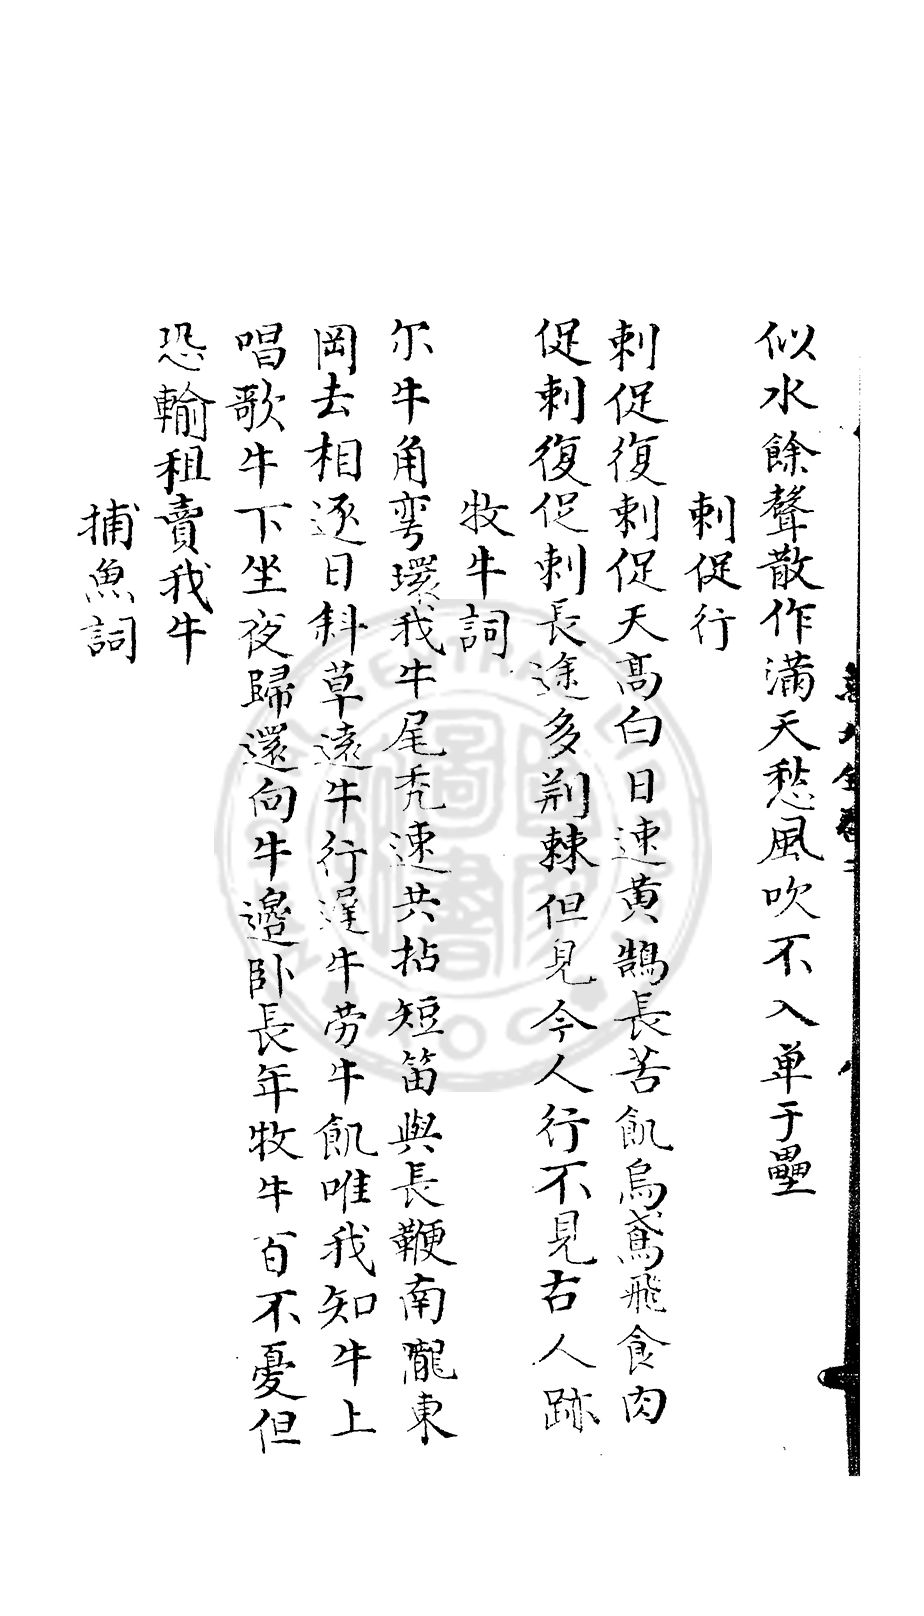 似水餘聲散作滿天愁風吹不入单于壘
刺促行
刺促復刺促天髙白日速黄鵠長苦飢烏鳶飛食肉
促刺復促刺長途多荆棘但見今人行不見古人跡
牧牛詞
尔牛角弯環我牛尾秃速共拈短笛與長鞭南隴東
岡去相逐日斜草遠牛行遲牛劳牛飢唯我知牛上
唱歌牛下坐夜歸還向牛邊卧長年牧牛百不憂但
恐輸租賣我牛
捕魚詞